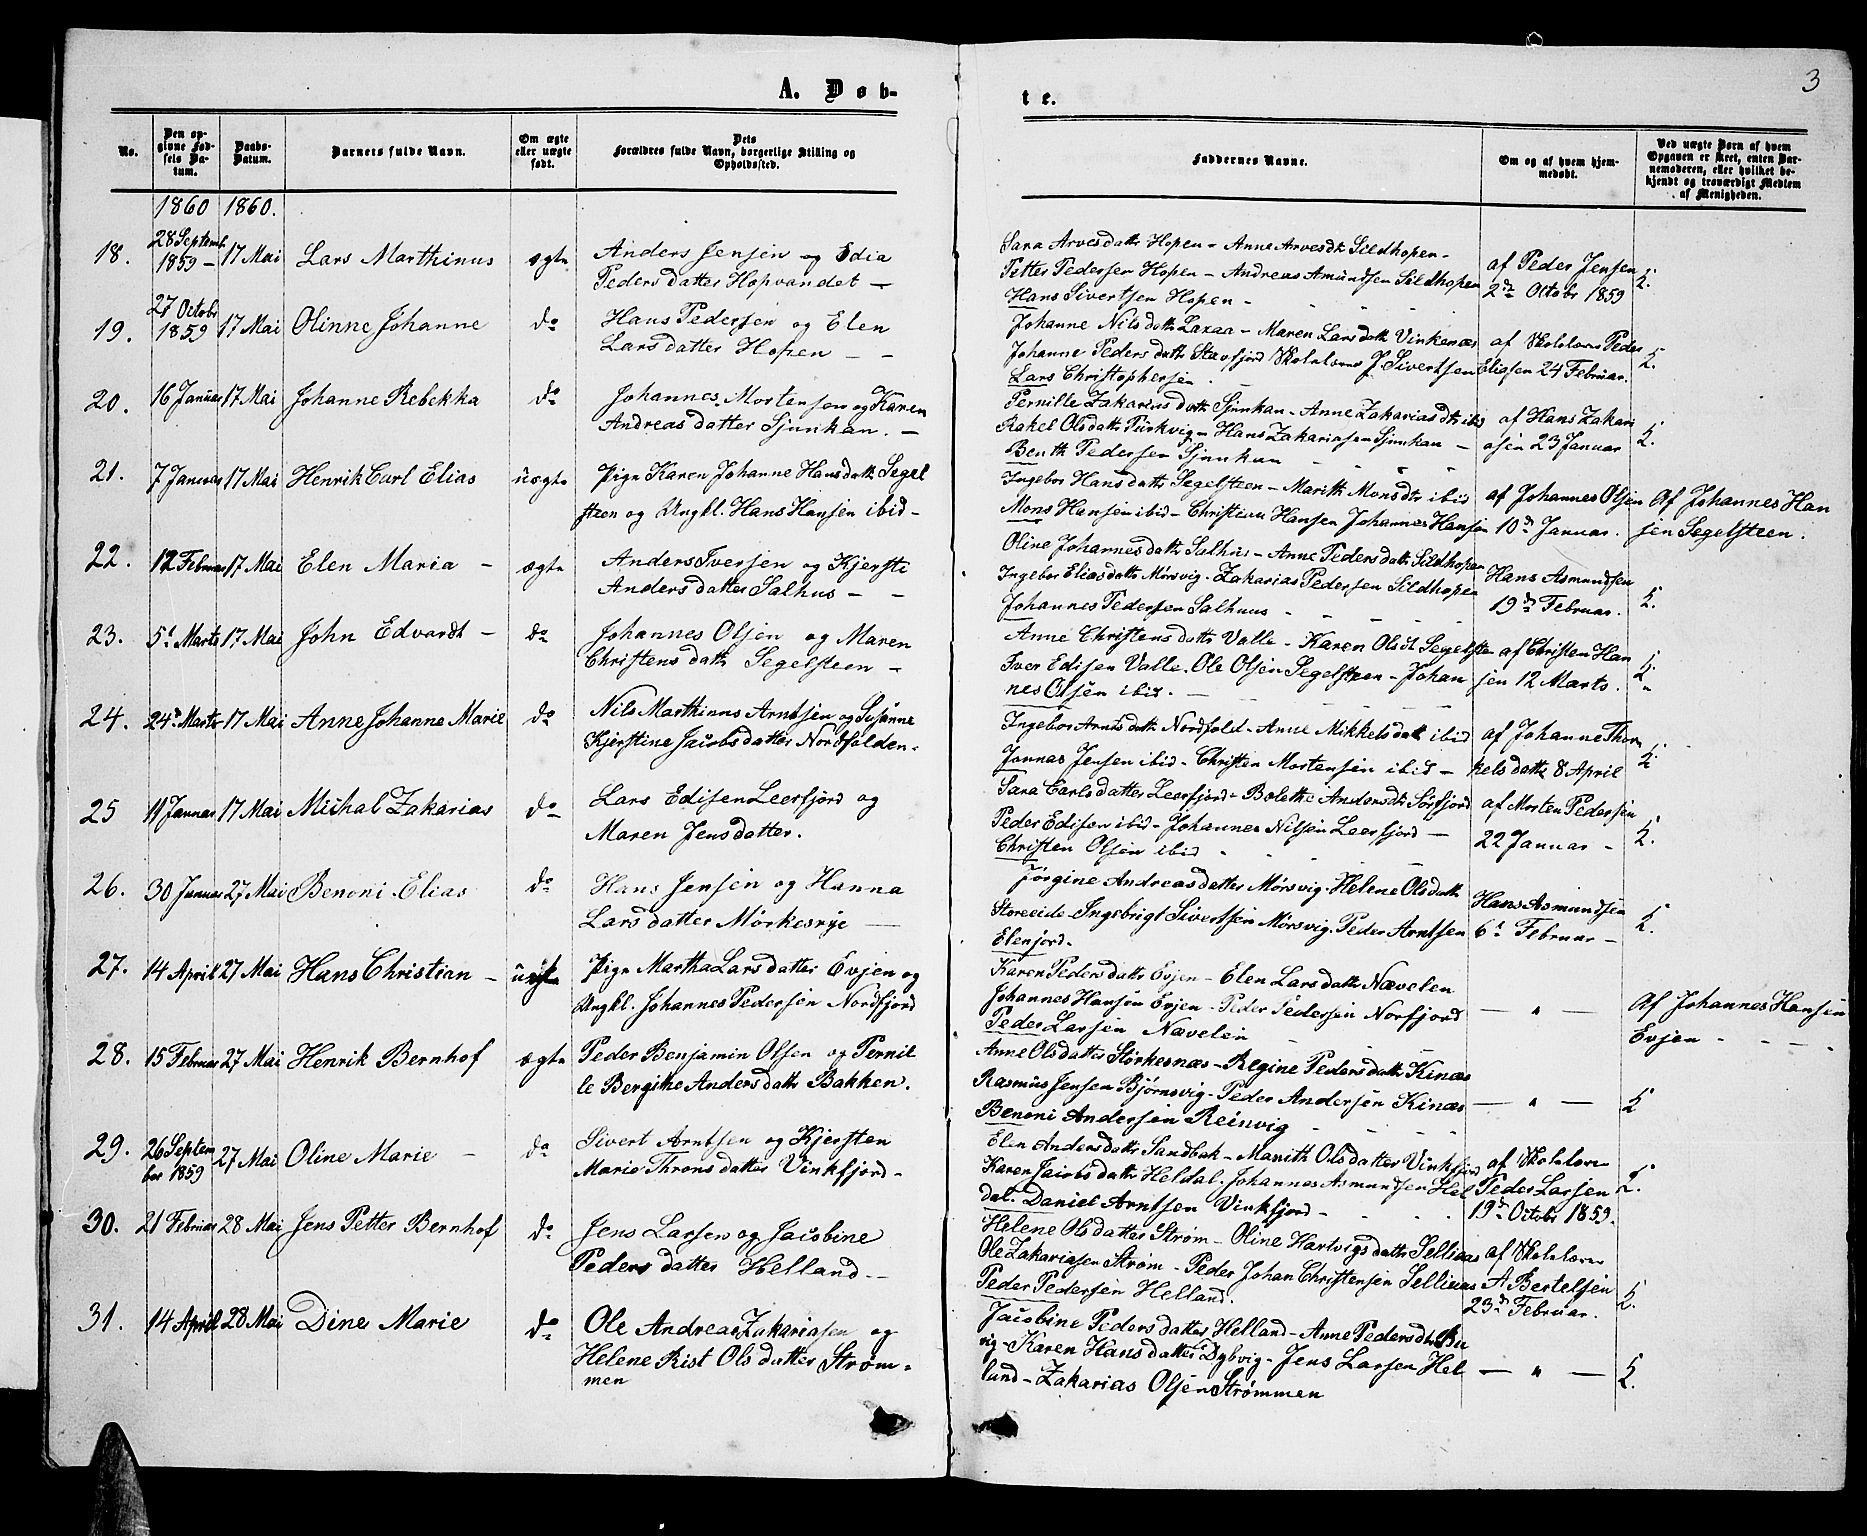 3
A. Døb-
te.
No.
Den op-
givne Fød-
sels Da-
tum.
Daabs-
Datum.
Barnets fulde Navn.
Om ægte
eller uægte
født.
Dets
Forældres fulde Navn, borgerlige Stilling og
Opholdssted.
Faddernes Navne.
Om og af hvem hjem-
medøbt.
Ved uægte Børn af hvem
Opgaven er skeet, enten Bar-
nemoderen, eller hvilket be-
kjendt og troværdigt Medlem
af Menigheden.
1860 1860.
18. 28 Septemb. 1859 - 17 Mai Lars Marthinus ægte
Anders Jensen og Edia
Pedersdatter Hopvandet -
Sara Arvesdattr Hopen - Anne Arvesdtr Sildhopen -
Petter Pedersen Hopen - Andreas Amundsen Sildhopen
Hans Sivertsen Hopen -
af Peder Jensen
2den Octobr 1859
19. 27 Octobr 1859 17 Mai Olinne Johanne do
Hans Pedersen og Elen
Larsdatter Hopen - -
Johanne Nilsdattr Laxaa - Maren Larsdattr Vinkenæs
Johanne Pedersdattr Stavfjord Skolelærer J. Sivertsen
Lars Christophersen
af Skolelærer Peder
Eliasen 24 Februar.
20. 16 Januar 17 Mai Johanne Rebekka do
Johannes Mortensen og Karen
Andreasdatter Sjunkan. -
Pernille Zakariasdattr Sjunkan - Anne Zakariasdtr ibid
Rakel Olsdattr Turkvig - Hans Zakariasen Sjunkan -
Benth Pedersen Sjunkan
af Hans Zakari
asen 23 Januar
21. 7 Januar 17 Mai Henrik Carl Elias uægte
Pige Karen Johanne Hansdattr Segel
steen og Ungkl. Hans Hansen ibid -
Ingebor Hansdattr Segelsteen - Marith Monsdtr ibid
Mons Hansen ibid - Christian Hansen Johannes Hansen
af Johannes Olsen
10de Januar.
Af Johannes Han
sen Segelsteen.
22. 12 Februar 17 Mai Elen Maria - ægte
Anders Iversen og Kjerste
Andersdatter Salhus - -
Oline Johannesdattr Salhus - Anne Pedersdattr Sildhopen
Ingebor Eliasdattr Mørsvig - Zakarias Pedersen Sildhopen
Johannes Pedersen Salhuus
Hans Asmundsen
19de Februar.
23. 5t Marts 17 Mai John Edvardt - do
Johannes Olsen og Maren
Christensdattr Segelsteen -
Anne Christensdattr Valle - Karen Olsdt Segelste
Iver Edisen Valle. Ole Olsen Segelsteen - Johan
nes Olsen ibid. -
af Christen Han
sen 12 Marts.
24. 24de Marts 17 Mai Anne Johanne Marie do
Nils Marthinus Arntsen og Susanne
Kjerstine Jacobsdatter Nordfolden -
Ingebor Arntsdattr Nordfold - Anne Mikkelsdatr ibid
Jonnas Jensen ibid - Christen Mortensen ibid -
af Johanne Thor
kelsdattr 8 April
25 11 Januar 17 Mai Michal Zakarias do
Lars Edisen Leerfjord og
Maren Jensdatter.
Sara Carlsdatter Leerfjord - Bolethe Andersdtr Sørfjord
Peder Edisen ibid - Johannes Nilsen Leerfjord -
Christen Olsen ibid
af Morten Pedersen
22 Januar -
26. 30 Januar 27 Mai Benoni Elias do
Hans Jensen og Hanna
Larsdatter Mørkesvje -
Jørgine Andreasdatter Mørsvig - Helene Olsdattr
Storeeide - Ingebrigt Sivertsen Mørsvig. Peder Arntsen
Elenjord -
Hans Asmundsen
6te Februar -
27. 14 April 27 Mai Hans Christian - uægte
Pige Martha Larsdatter Evjen og
Ungkl. Johannes Pedersen Nordfjord
Karen Pedersdattr Evjen - Elen Larsdattr Nævelen
Johannes Hansen Evjen - Peder Pedersen Norfjord
Peder Larsen Nævelen
- " -
Af Johannes Hansen
Evjen -
28. 15 Februar 27 Mai Henrik Bernhof ægte
Peder Benjamin Olsen og Pernil
le Bergithe Andersdattr Bakken.
Anne Olsdatter Størkesnæs - Regine Pedersdattr Kinæs
Rasmus Jensen Bjørnsvig - Peder Andersen Kinæs
Benoni Andersen Reinvig
- " -
29. 26 Septem
ber 1859 27 Mai Oline Marie - do
Sivert Arntsen og Kjersten
Marie Thronsdatter Vinkfjord -
Elen Andersdattr Sandbak - Marith Olsdatter Vinkfjord
Karen Jacobsdattr Heldal. Johannes Asmundsen Hel
dal. Daniel Arntsen Vinkfjord -
af Skolelærer
Peder Larsen
19de Octobr 1859.
30. 21 Februar 28 Mai Jens Petter Bernhof do
Jens Larsen og Jacobine
Pedersdatter Helland -
Helene Olsdatter Strøm - Oline Hartvigsdattr Selliaas
Ole Zakariasen Strøm - Peder Johan Christensen Selliaas
Peder Pedersen Helland.
af Skolelærer
A Bertelsen
23de Februar.
31. 14 April 28 Mai Dine Marie do
Ole Andreas Zakariasen og
Helene Rist Olsdatter Strøm-
men
Jacobine Pedersdatter Helland - Anne Pedersdtr Bu
vig - Karen Hansdatter Dybvig - Jens Larsen Hel
land - Zakarias Olsen Strømmen
- " -